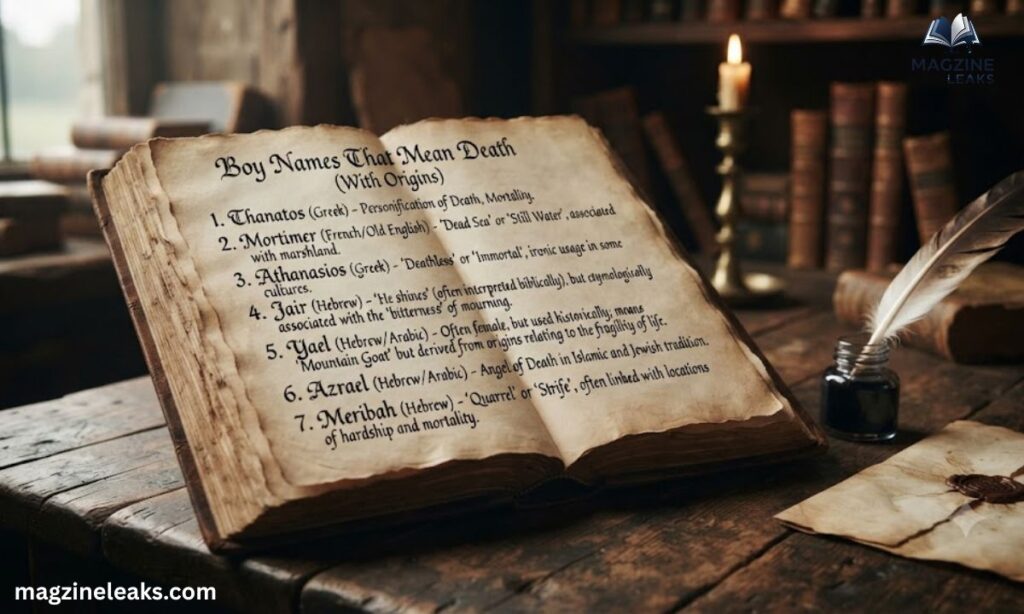 MAGZINE
LEAKS
Boy Names That Mean Death
(With Origins)
1. Thanatos (Greek) – Personification of Death, Mortality.
2. Mortimer (French/Old English) – 'Dead Sea' or 'Still Water', associated
with marshland.
3. Athanasios (Greek) – 'Deathless' or 'Immortal', ironic usage in some
cultures.
4. Jair (Hebrew) – 'He shines' (often interpreted biblically), but etymologically
associated with the 'bitterness' of mourning.
5. Yael (Hebrew/Arabic) – Often female, but used historically; means
'Mountain Goat' but derived from origins relating to the fragility of life.
6. Azrael (Hebrew/Arabic) – Angel of Death in Islamic and Jewish tradition.
7. Meribah (Hebrew) – 'Quarrel' or 'Strife', often linked with locations
of hardship and mortality.
magzineleaks.com